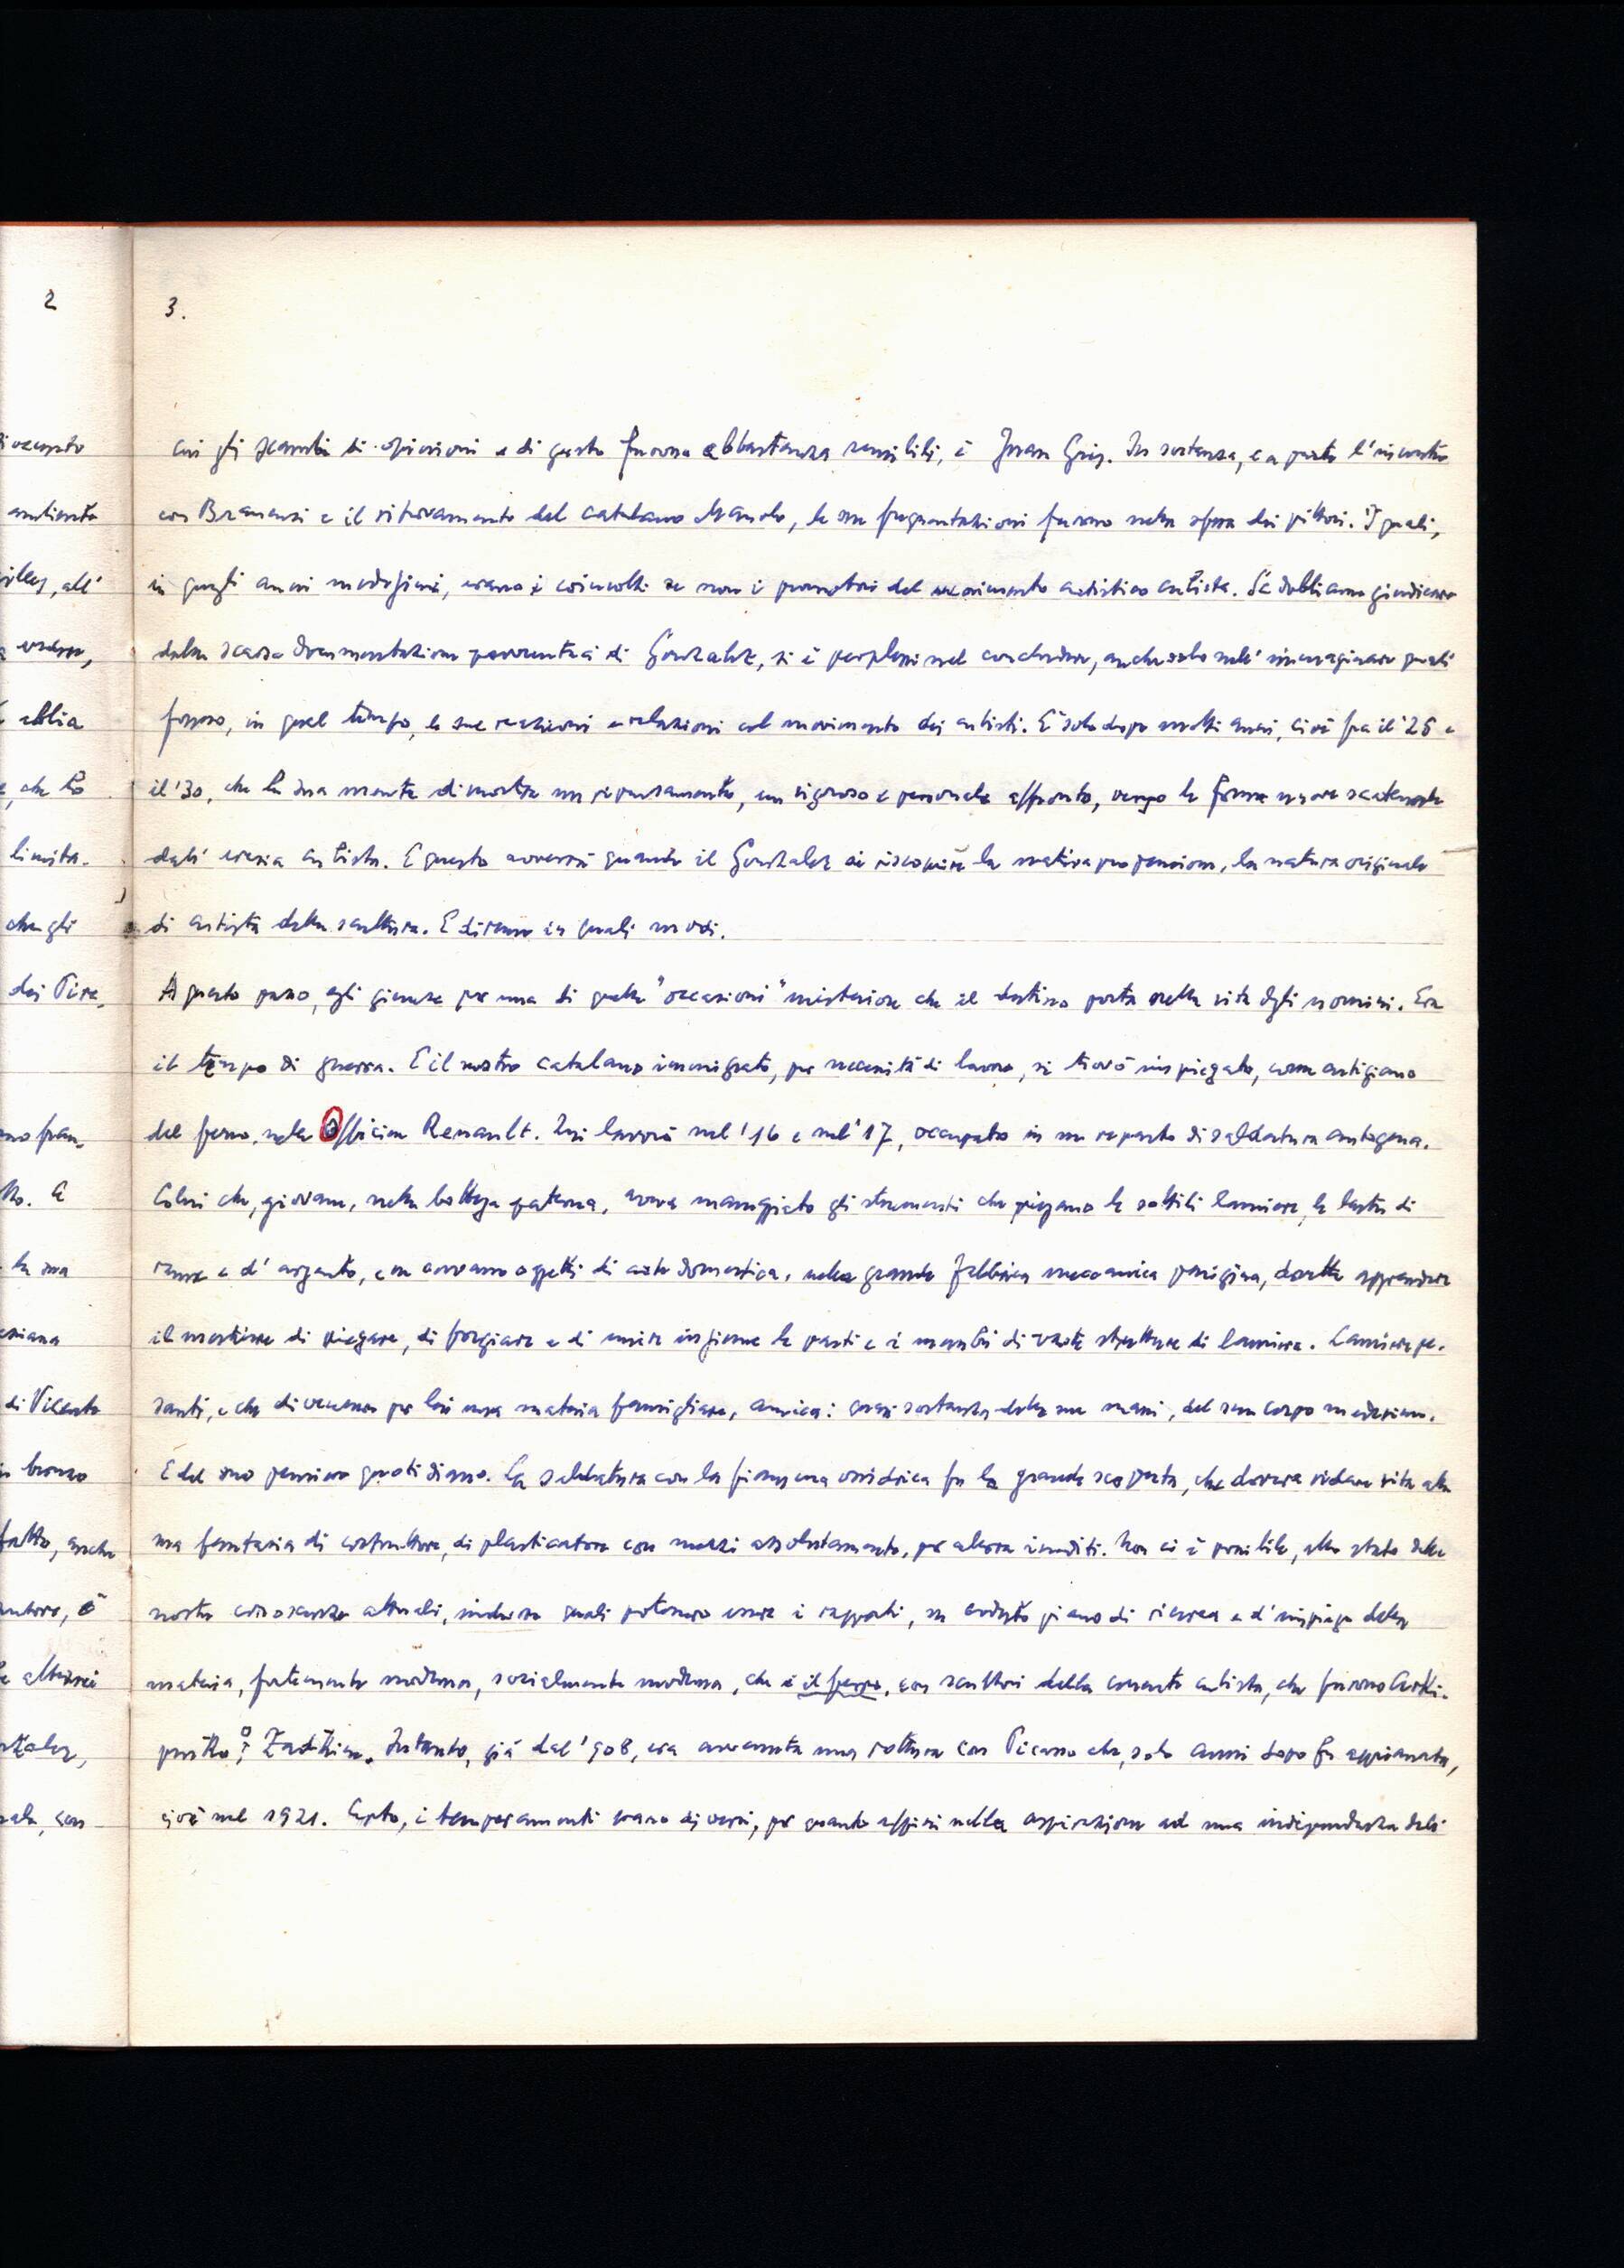 2
3.
cui gli scambi di opinioni e di gusto furono abbastanza sensibili, è Juan Gris. In sostanza, e a parte l'incontro
con Brancusi e il ritrovamento del catalano Manolo, le sue frequentazioni furono nella sfera dei pittori. I quali,
in quegli anni medesimi, erano i coinvolti se non i promotori del movimento artistico cubista. Se dobbiamo giudicare
dalla scarsa documentazione pervenutaci di Gonzalez, si è perplessi nel concludere, anche solo nell'immaginare quali
fossero, in quel tempo, le sue reazioni e relazioni col movimento dei cubisti. E' solo dopo molti anni, cioè fra il '25 e
il '30, che la sua mente dimostra un ripensamento, un vigoroso e personale affronto, verso le forme nuove scatenate
dall'eresia cubista. E questo avverrà quando il Gonzalez si riscoprirà la nativa propensione, la natura originale
di artista della scultura. E diremo in quali modi.
A questo passo, egli giunse per una di quelle "occasioni" misteriose che il destino porta nella vita degli uomini. Era
il tempo di guerra. E il nostro catalano immigrato, per necessità di lavoro, si trovò impiegato, come artigiano
del ferro, nelle Officine Renault. Ivi lavorò nel '16 e nel '17, occupato in un reparto di saldatura autogena.
Colui che, giovane, nella bottega paterna, aveva maneggiato gli strumenti che piegano le sottili lamiere, le lastre di
rame e d'argento, e ne avevano oggetti di arte domestica, nella grande fabbrica meccanica parigina, dovette apprendere
il mestiere di piegare, di forgiare e di unire insieme le parti e i membri di vaste strutture di lamiera. Lamiere pe-
santi, e che divennero per lui una materia famigliare, amica: quasi sostanza delle sue mani, del suo corpo medesimo.
E del suo pensiero quotidiano. La saldatura con la fiamma ossidrica fu la grande scoperta, che doveva ridare vita alla
sua fantasia di costruttore, di plasticatore con mezzi assolutamente, per allora inediti. Non ci è possibile, allo stato delle
nostre conoscenze attuali, indurre quali potessero essere i rapporti, su codesto piano di ricerca e d'impiego della
materia, fortemente moderna, socialmente moderna, che è il ferro, con scultori della corrente cubista, che furono Archi-
penko o Zadkine. Intanto, già dal '908, era avvenuta una rottura con Picasso che, solo anni dopo fu appianata,
cioè nel 1921. Certo, i temperamenti erano diversi, per quanto affini nella aspirazione ad una indipendenza dall'